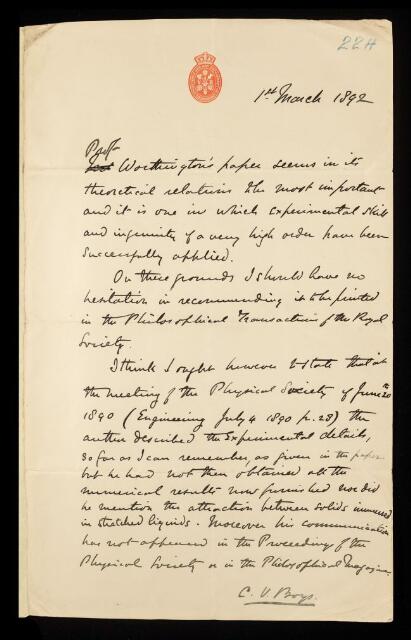 224
1st March 1892
Prof
Worthington's paper seems in its
theoretical relations to be most important
and it is one in which experimental skill
and ingenuity of a very high order have been
successfully applied.
On these grounds I should have no
hesitation in recommending it to be printed
in the Philosophical Transactions of the Royal
Society.
I think I ought however to state that at
the meeting of the Physical Society of June 20
1890 (Engineering July 4 1890 p. 28) the
author described the experimental details,
so far as I can remember, as given in the paper
but he had not then obtained all the
numerical results now furnished nor did
he mention the attraction between solids immersed
in stretched liquids. Moreover his communication
has not appeared in the Proceedings of the
Physical Society or in the Philosophical Magazine.
C. V. Boys.